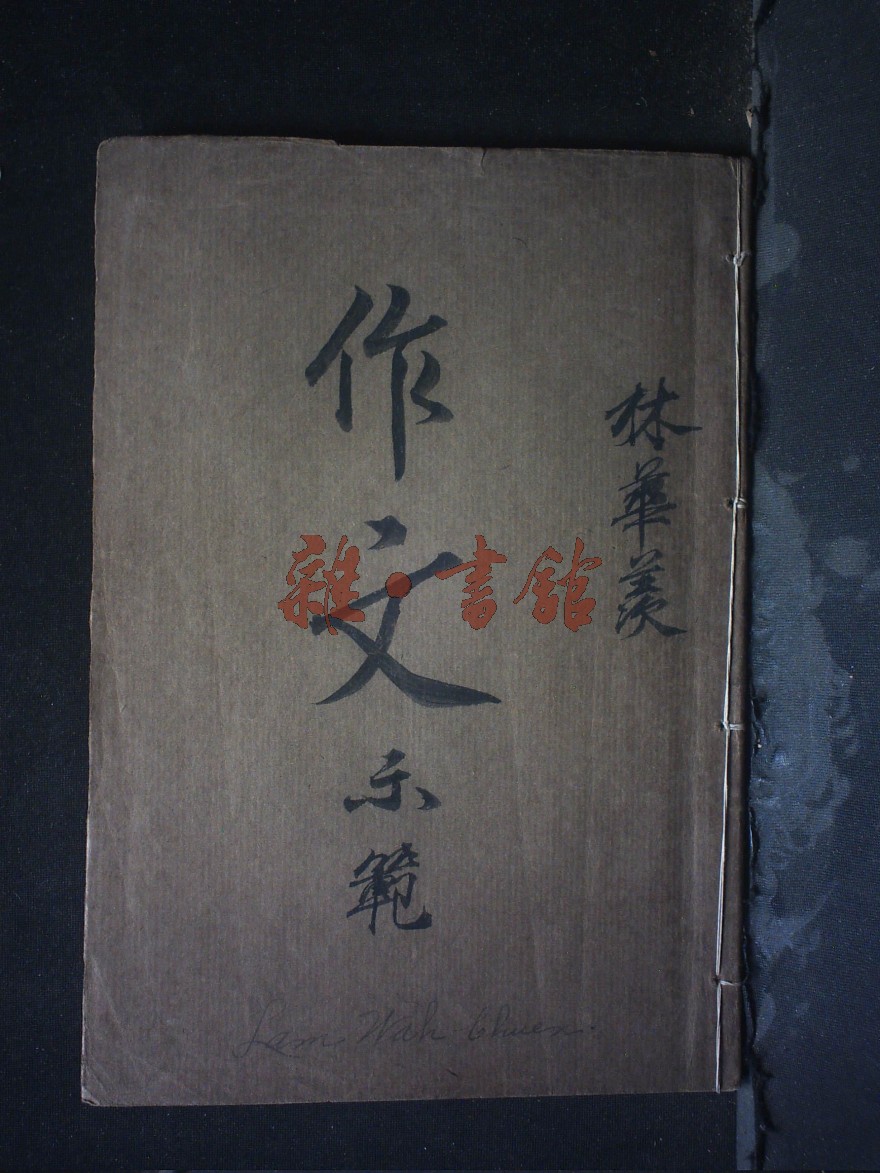 林華羨
作文示範
雜·書館
Lam Wah Chuen.